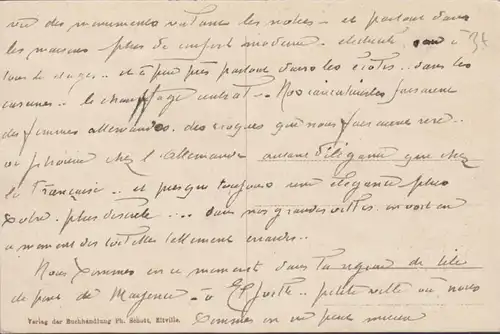 vu des monuments valant les nôtres - et partout dans
les maisons plus de confort moderne. electricité, eau à
tous les étages.. et à peu près partout dans les écoles.. dans les
casernes.. le chauffage central.. Nos caricaturistes faisaient
des femmes allemandes, des croquis qui nous faisaient rire..
on trouve chez l'Allemande autant d'élégance que chez
la Française.. et presque toujours une élégance plus
sobre. plus discrète.... dans nos grandes villes on voit en
ce moment des toilettes tellement
Nous sommes en ce moment dans la région de
de Mayence - à Eltville.. petite ville où nous
sommes on ne peut mieux
Verlag der Buchhandlung Ph. Schott, Eltville.